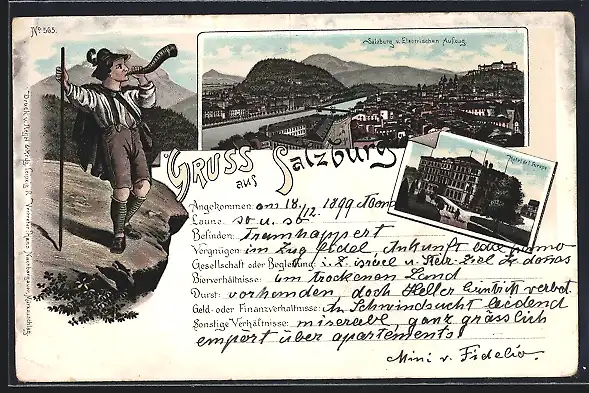 No 563.
Salzburg v. Electrischen Aufzug.
Hotel de l'Europe
Gruss aus Salzburg
Angekommen: am 18./12. 1899
Laune: so u. so
Befinden: Tramhappert
Vergnügen: im Zug fidel, Ankunft
Gesellschaft oder Begleitung: i. Z. israel u.
Bierverhältnisse: am trockenen Land
Durst: vorhanden, doch Keller Eintritt verbot.
Geld- oder Finanzverhältnisse: An Schwindsucht leidend
Sonstige Verhältnisse: miserable, ganz grässlich
empört über apartements!
Mini v. Fidelio.